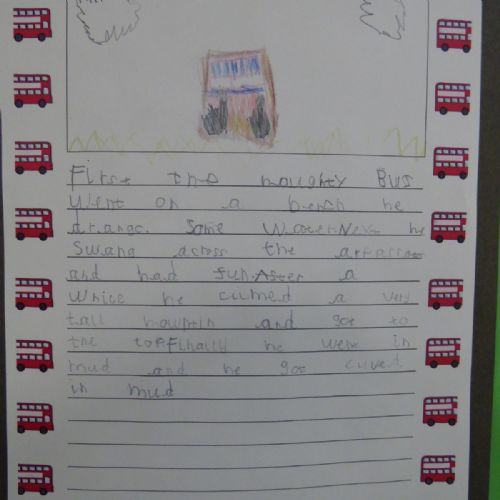 First the noughty Bus
went on a bench he
drange. Some Water. Next he
Swang across the
and had fun. After a
while he climed a very
tall mountin and got to
the top. Finally he went in
mud and he got cuverd
in mud